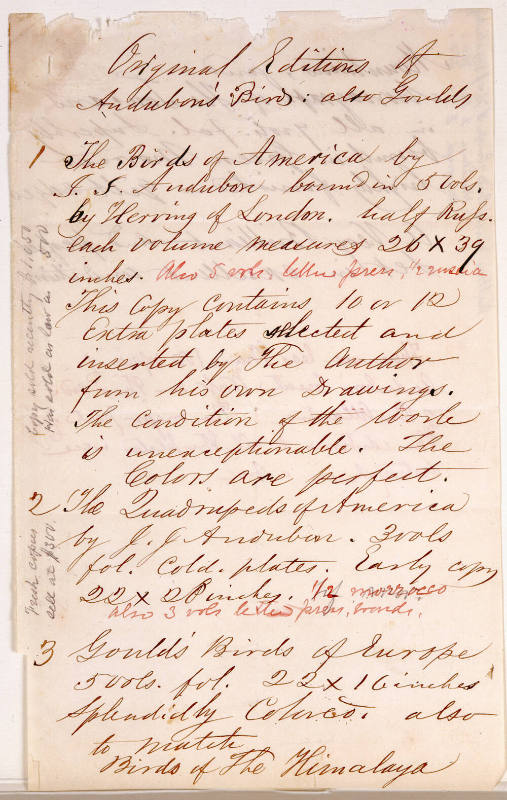 Original Editions of
Audubon's Birds: also Goulds
1 The Birds of America by
J. J. Audubon bound in 5 vols.
by Herring of London. half Russ.
each volume measures 26 X 39
inches. Also 5 vols letter press, 1/2 russia
This copy contains 10 or 12
Extra plates selected and
inserted by The Author
from his own Drawings.
The condition of the Work
is unexceptionable. The
Colors are perfect.
2 The Quadrupeds of America
by J. J. Audubon. 3 vols
fol. Cold. plates. Early copy
22 x 28 inches. 1/2 morrocco
also 3 vols letter press, boards.
3 Gould's Birds of Europe
5 vols. fol. 22 X 16 inches
Splendidly Colored. also
to match
Birds of The Himalaya
Copy sold recently $1,050
sold as low as 500
Fresh copies
sell at $300.